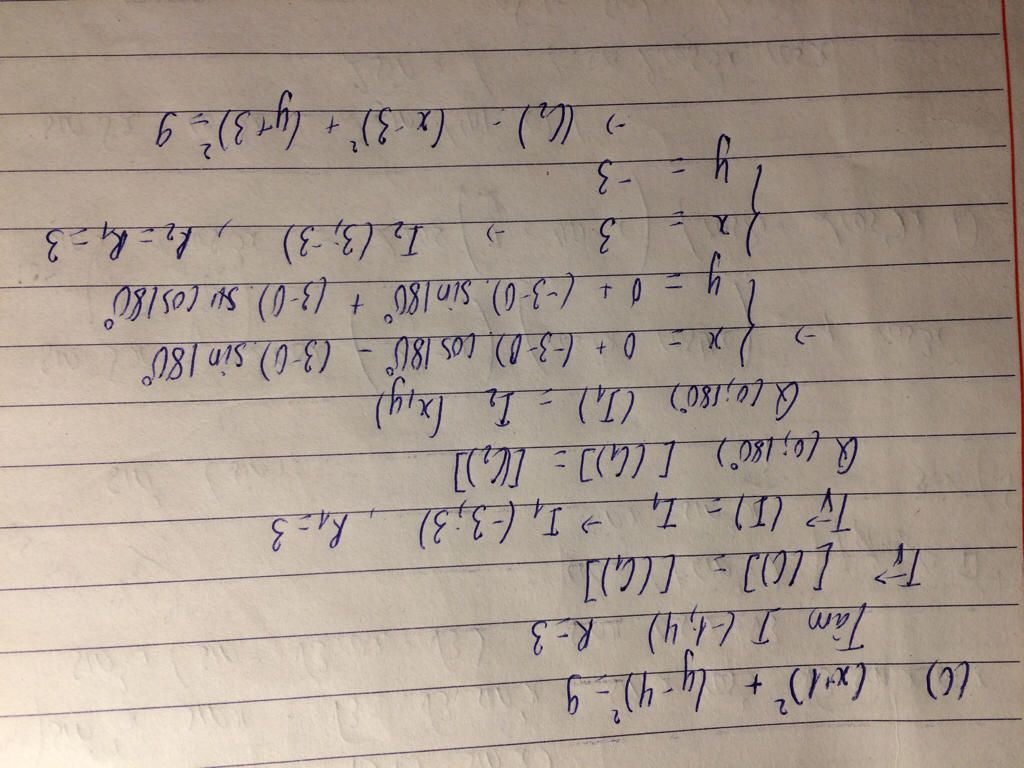 (C) (x+1)² + (y-4)² = 9
Tâm I (-1;4) R=3
Tv→ [(C)] = [(C₁)]
Tv→ (I) = I₁ → I₁ (-3;3) , R₁=3
Q(0;180°) [(C₁)] = [(C₂)]
Q(0;180°) (I₁) = I₂ (x,y)
→ { x = 0 + (-3-0).cos180° - (3-0).sin180°
{ y = 0 + (-3-0).sin180° + (3-0). cos180°
{ x = 3 → I₂ (3;-3) , R₂=R₁=3
{ y = -3
→ (C₂) - (x-3)² + (y+3)² = 9